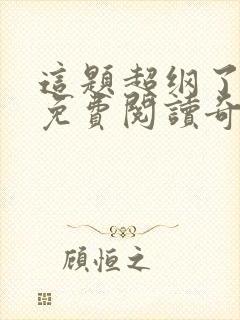 這題超纲了
免費閱讀奇
顧恒之